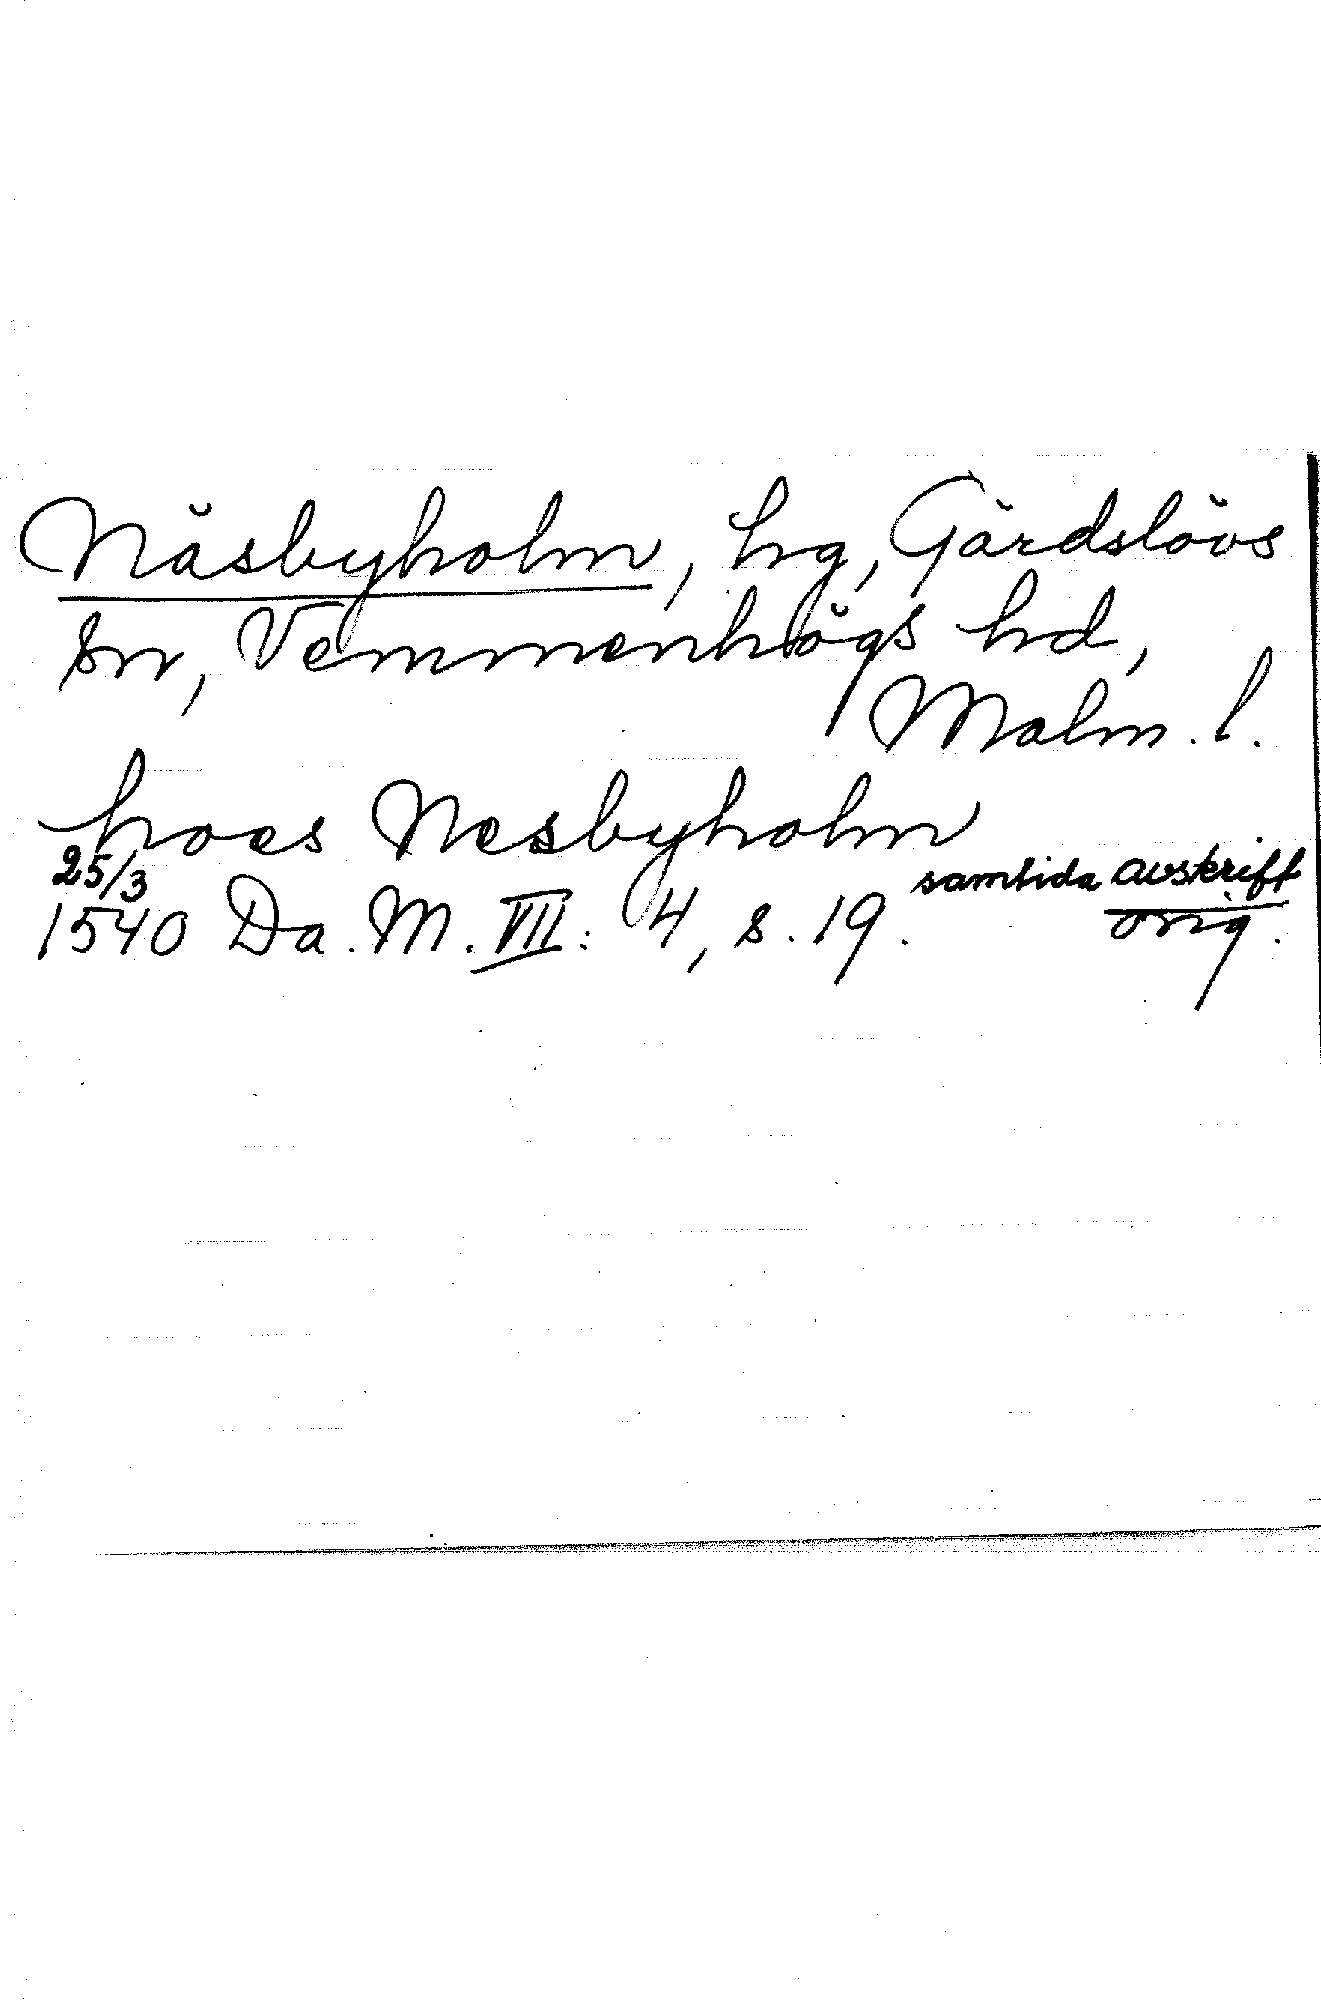 Näsbyholm, hg, Gärdslövs
sn, Vemmenhögs hd,
Malm. l.
hoes Nesbyholm
25/3
samtida avskrift
1540 Da. M. VIII: 4, s. 19. orig.